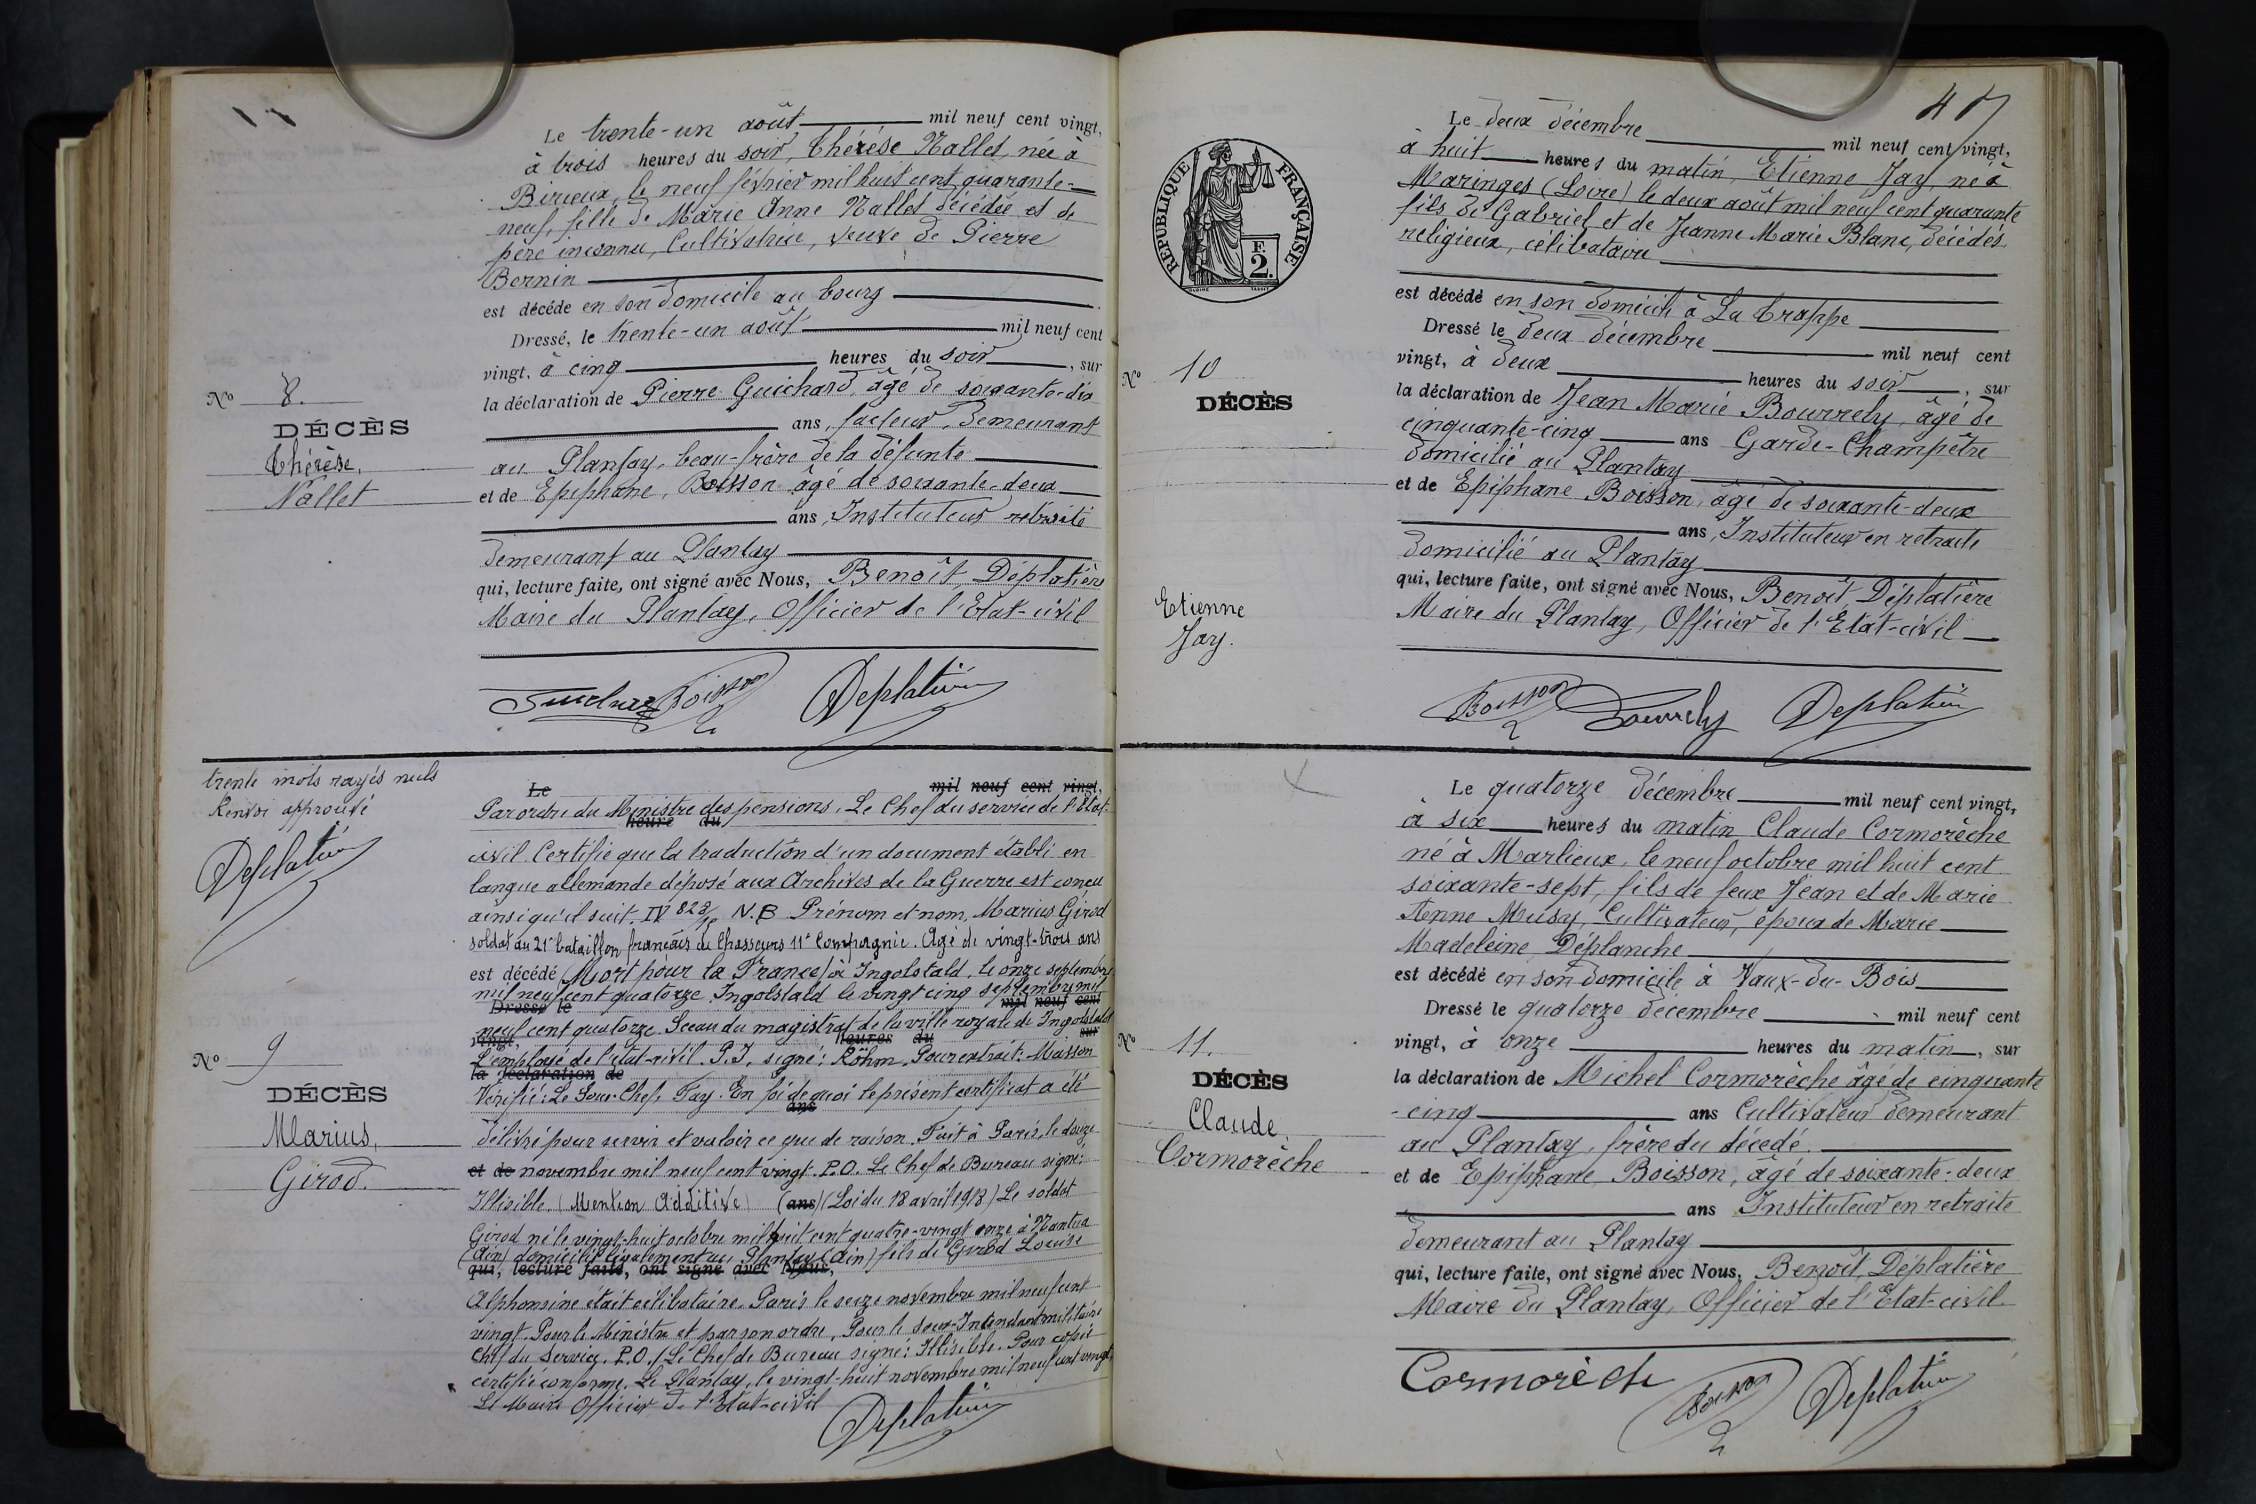 Le trente-un août mil neuf cent vingt,
à trois heures du soir, Thérèse Nallet, née à
Birieux, le neuf février mil huit cent quarante-
neuf, fille de Marie Anne Nallet décédée et de
père inconnu, Cultivatrice, veuve de Pierre
Bernin
est décédé en son domicile au bourg
Dressé, le trente-un août mil neuf cent
vingt, à cinq heures du soir, sur
la déclaration de Pierre Guichard, âgé de soixante-dix
ans, facteur, demeurant
au Plantay, beau-frère de la défunte
et de Epiphane, Boisson âgé de soixante-deux
ans, Instituteur retraité
demeurant au Plantay
qui, lecture faite, ont signé avec Nous, Benoît, Déplatière
Maire du Plantay, Officier de l'Etat-civil
No 8.
DÉCÈS
Thérèse,
Nallet
Boisson Deplatière
trente mots rayés nuls
Renvoi approuvé
Deplatière
No 9
DÉCÈS
Marius,
Girod.
Le mil neuf cent vingt,
Par ordre du Ministre des pensions, Le Chef du service de l'Etat-
heure du
civil Certifie que la traduction d'un document établi en
langue allemande déposé aux Archives de la Guerre est conçu
ainsi qu'il suit. IV 828/10 N.B Prénom et nom, Marius Girod
soldat au 21e bataillon français de Chasseurs 11e Compagnie. Agé de vingt-trois ans
est décédé (Mort pour la France) à Ingolstald, le onze septembre
mil neuf cent quatorze. Ingolstald le vingt cinq septembre mil
Dressé le mil neuf cent
neuf cent quatorze. Sceau du magistrat de la ville royale de Ingolstald
vingt, heures du sur
L'employé de l'état-civil. P.I. signé: Röhm. Pour extrait: Maisson
la déclaration de
Vérifié: Le Sous-Chef, Fay. En foi de quoi le présent certificat a été
ans
délivré pour servir et valoir ce que de raison. Fait à Paris, le douze
et de novembre mil neuf cent vingt. P.O. Le Chef de Bureau signé:
Illisible. (Mention Additive) (ans) (Loi du 18 avril 1918) Le soldat
Girod né le vingt-huit octobre mil huit cent quatre-vingt onze à Nantua
(Ain) domicilié légalement au Plantay (Ain) fils de Girod Louise
qui, lecture faite, ont signé avec Nous,
Alphonsine était célibataire. Paris le seize novembre mil neuf cent
vingt. Pour le Ministre et par son ordre, Pour le Sous-Intendant militaire
Chef du Service. P.O. Le Chef de Bureau signé: Illisible. Pour copie
certifiée conforme. Le Plantay, le vingt-huit novembre mil neuf cent vingt.
Le Maire Officier de l'Etat-civil
Deplatière
47
RÉPUBLIQUE FRANÇAISE
F
2.
Le deux décembre mil neuf cent vingt,
à huit heures du matin, Etienne Jay, né à
Maringes (Loire) le deux août mil neuf cent quarante
fils de Gabriel et de Jeanne Marie Blanc, décédés
religieux, célibataire
est décédé en son domicile à La Trappe
Dressé le deux décembre mil neuf cent
vingt, à deux heures du soir, sur
la déclaration de Jean Marie Bourrely, âgé de
cinquante-cinq ans Garde-Champêtre
domicilié au Plantay
et de Epiphane Boisson, âgé de soixante-deux
ans, Instituteur en retraite
domicilié au Plantay
qui, lecture faite, ont signé avec Nous, Benoît Déplatière
Maire du Plantay, Officier de l'Etat-civil
No 10
DÉCÈS
Etienne
Jay.
Boisson Bourrely Deplatière
Le quatorze décembre mil neuf cent vingt,
à six heures du matin Claude Cormorèche
né à Marlieux, le neuf octobre mil huit cent
soixante-sept, fils de feux Jean et de Marie
Anne Musy, Cultivateur, époux de Marie
Madeleine Déplanche
est décédé en son domicile à Vaux-du-Bois
Dressé le quatorze décembre mil neuf cent
vingt, à onze heures du matin, sur
la déclaration de Michel Cormorèche âgé de cinquante
-cinq ans Cultivateur demeurant
au Plantay, frère du décédé
et de Epiphane Boisson, âgé de soixante-deux
ans Instituteur en retraite
demeurant au Plantay
qui, lecture faite, ont signé avec Nous, Benoît, Déplatière
Maire du Plantay, Officier de l'Etat-civil
No 11.
DÉCÈS
Claude,
Cormorèche
Cormorèche Boisson Deplatière